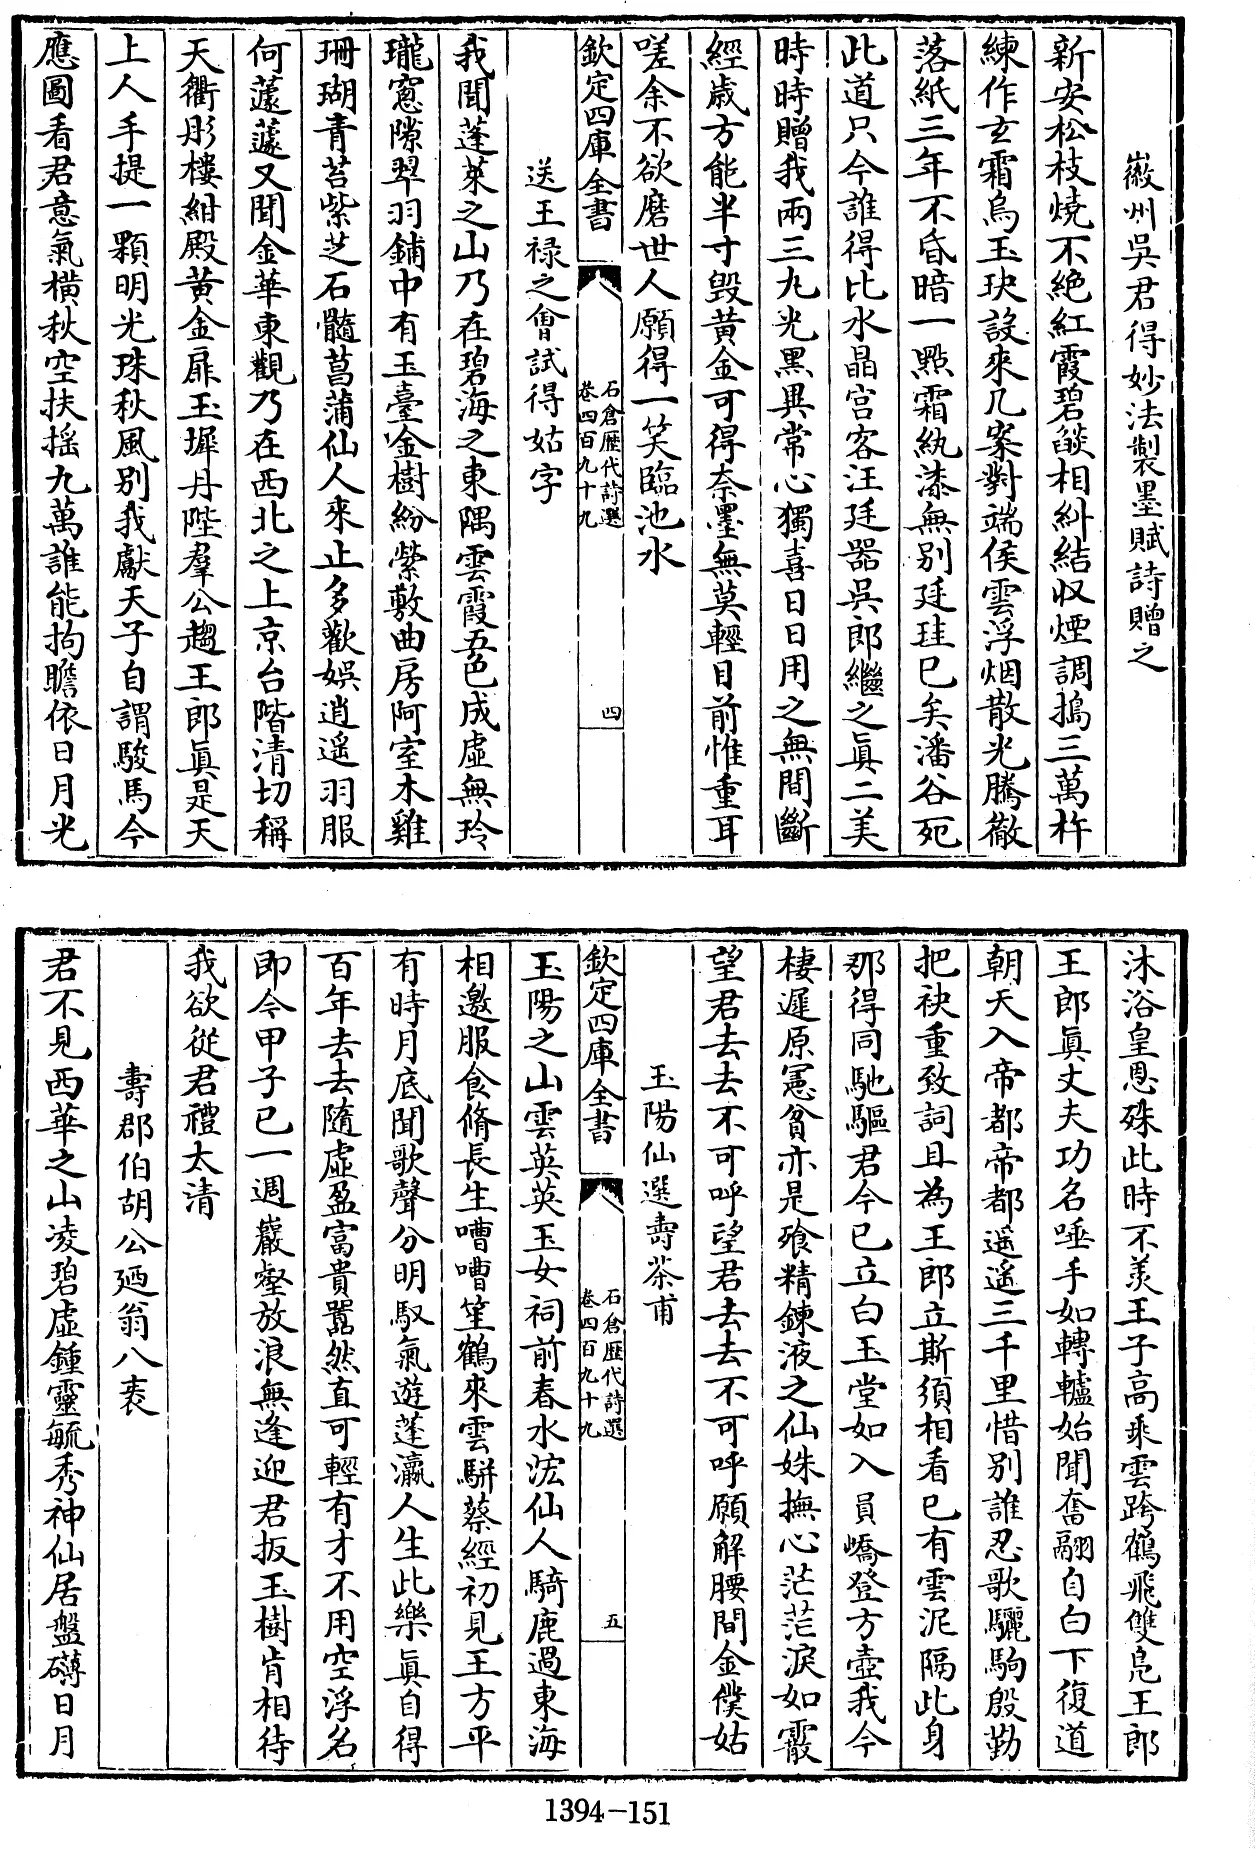 徽州吳君得妙法製墨賦詩贈之
新安松枝燒不絶紅霞碧燄相糾結収煙調搗三萬杵
練作玄霜烏玉玦設來几案對端侯雲浮烟散光騰徹
落紙三年不昏暗一點霜紈漆無别廷珪已矣潘谷死
此道只今誰得比水晶宮客汪廷器吳郎繼之眞二美
時時贈我兩三丸光黑異常心獨喜日日用之無間斷
經歲方能半寸毀黄金可得奈墨無莫輕目前惟重耳
嗟余不欲磨世人願得一笑臨池水
欽定四庫全書
石倉歷代詩選
卷四百九十九
四
送王禄之會試得姑字
我聞蓬萊之山乃在碧海之東隅雲霞五色成虛無玲
瓏窻隙翠羽鋪中有玉臺金樹紛縈敷曲房阿室木雞
珊瑚青苔紫芝石髓菖蒲仙人來止多歡娛逍遥羽服
何蘧蘧又聞金華東觀乃在西北之上京台階清切稱
天衢彤樓紺殿黄金扉玉墀丹陛羣公趨王郎眞是天
上人手提一顆明光珠秋風别我獻天子自謂駿馬今
應圖看君意氣橫秋空扶揺九萬誰能拘瞻依日月光
沐浴皇恩殊此時不羡王子高乘雲跨鶴飛雙鳬王郎
王郎眞丈夫功名唾手如轉轤始聞奮翮自白下復道
朝天入帝都帝都遥遥三千里惜别誰忍歌驪駒殷勤
把袂重致詞且為王郎立斯須相看已有雲泥隔此身
那得同馳驅君今已立白玉堂如入員嶠登方壺我今
棲遲原憲貧亦是飱精鍊液之仙姝撫心茫茫淚如霰
望君去去不可呼望君去去不可呼願解腰間金僕姑
欽定四庫全書
石倉歷代詩選
卷四百九十九
五
玉陽仙選壽茶甫
玉陽之山雲英英玉女祠前春水浤仙人騎鹿過東海
相邀服食脩長生嘈嘈笙鶴來雲駢蔡經初見王方平
有時月底聞歌聲分明馭氣遊蓬瀛人生此樂眞自得
百年去去隨虛盈富貴嚣然直可輕有才不用空浮名
即今甲子已一週巖壑放浪無逢迎君扳玉樹肯相待
我欲從君禮太清
壽郡伯胡公廼翁八袠
君不見西華之山凌碧虛鍾靈毓秀神仙居盤礴日月
1394-151